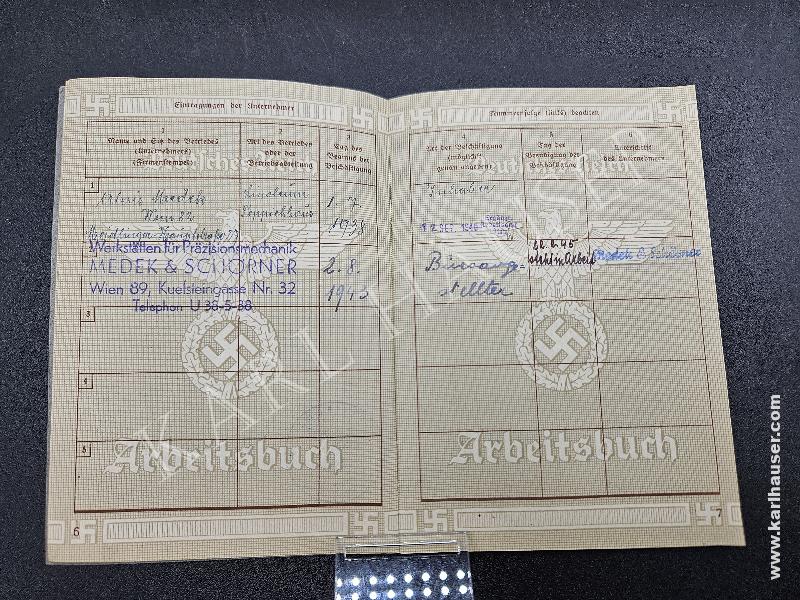 Eintragungen der Unternehmer
1
Name und Sitz des Betriebes
(Unternehmers)
(Firmenstempel)
2
Art des Betriebes
oder der
Betriebsabteilung
3
Tag des
Beginns der
Beschäftigung
1
Medek
Linoleum
1. 7.
Wien 82
Teppichhaus
1938
Werkstätten für Präzisionsmechanik
MEDEK & SCHÖRNER
2. 8.
Wien 89, Kuelsleingasse Nr. 32
1943
Telephon U 38-5-38
3
4
5
Arbeitsbuch
6
Nummernfolge (links) beachten
4
Art der Beschäftigung
(möglichst
genau angeben)
5
Tag der
Beendigung der
Beschäftigung
6
Unterschrift
des Unternehmers
Deutsches Reich
Büroange-
stellter
Medek & Schörner
Arbeitsbuch
7
KARL HAUSER
www.karlhauser.com